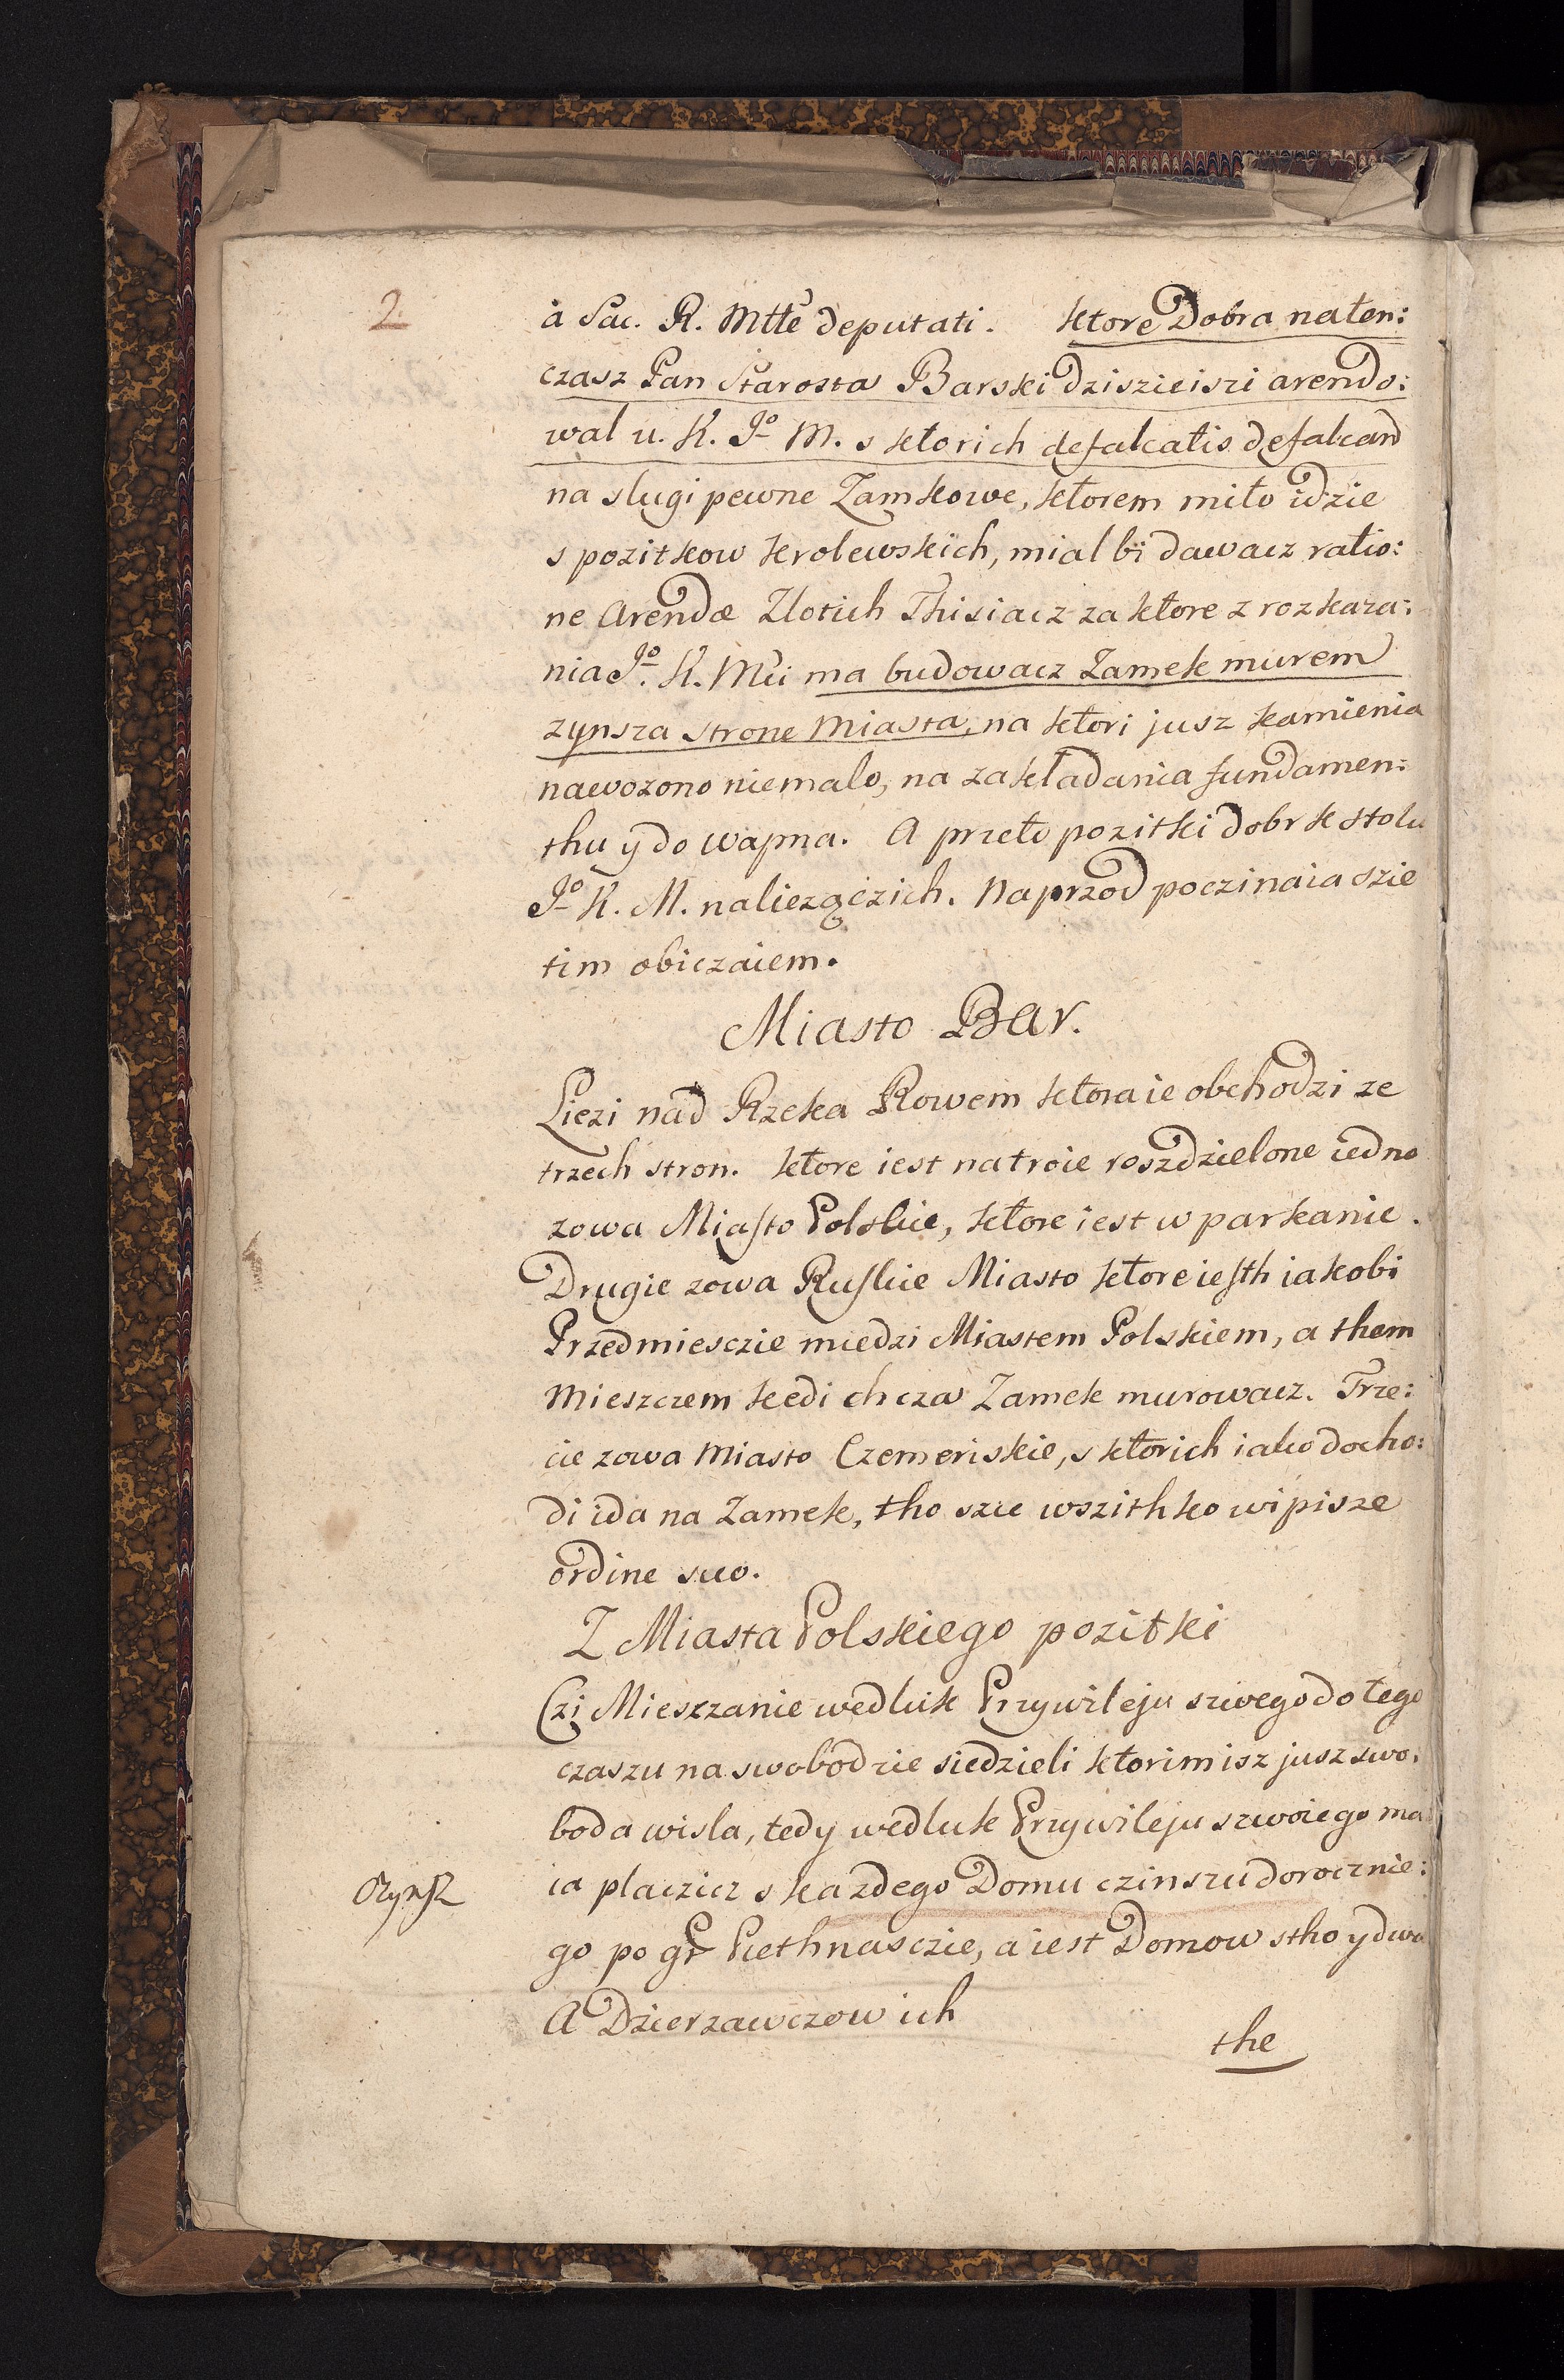 2
à Sac. R. Mtte deputati. ktore Dobra naten:
czasz Pan Starosta Barski dzisziejszi arendo:
wal u. K. Jº M. s ktorich defalcatis defalcand
na slugi pewne Zamkowe, ktorem mito idzie
s pozitkow krolewskich, mial bi dawacz ratio:
ne Arendæ Zlotich Thisiacz za ktore z rozkaza:
nia Jº. K. Mci ma budowacz Zamek murem
zynsza strone Miasta, na ktori jusz kamienia
nawozono niemalo, na zakładania fundamen:
thu y do wapna. A przeto pozitki dobr k stolu
Jº K. M. naliezączich. Naprzod poczinaia szie
tim obiczaiem.
Miasto Bar.
Liezi nad Rzeka Rowem ktora ie obchodzi ze
trzech stron. ktore iest na troie roszdzielone iedno
zowa Miasto Polskie, ktore iest w parkanie.
Drugie zowa Ruskie Miasto ktore iesth iakobi
Przedmiesczie miedzi Miastem Polskiem, a them
Mieszczem kedi chcza Zamek murowacz. Trze:
cie zowa Miasto Czemeriskie, s ktorich iako docho:
di ida na Zamek, tho szie wszithko wipisze
ordine suo.
Z Miasta Polskiego pozitki
Czi Mieszczanie wedluk Przywileju swego do tego
czaszu na swobodzie siedzieli ktorim isz jusz swo:
boda wisla, tedy wedluk Przywileju szwoiego ma
ia placzicz s kazdego Domu czinszu dorocznie:
go po gr Piethnasczie, a iest Domow stho y dwa
A Dzierzawczow ich
the
Czynsz